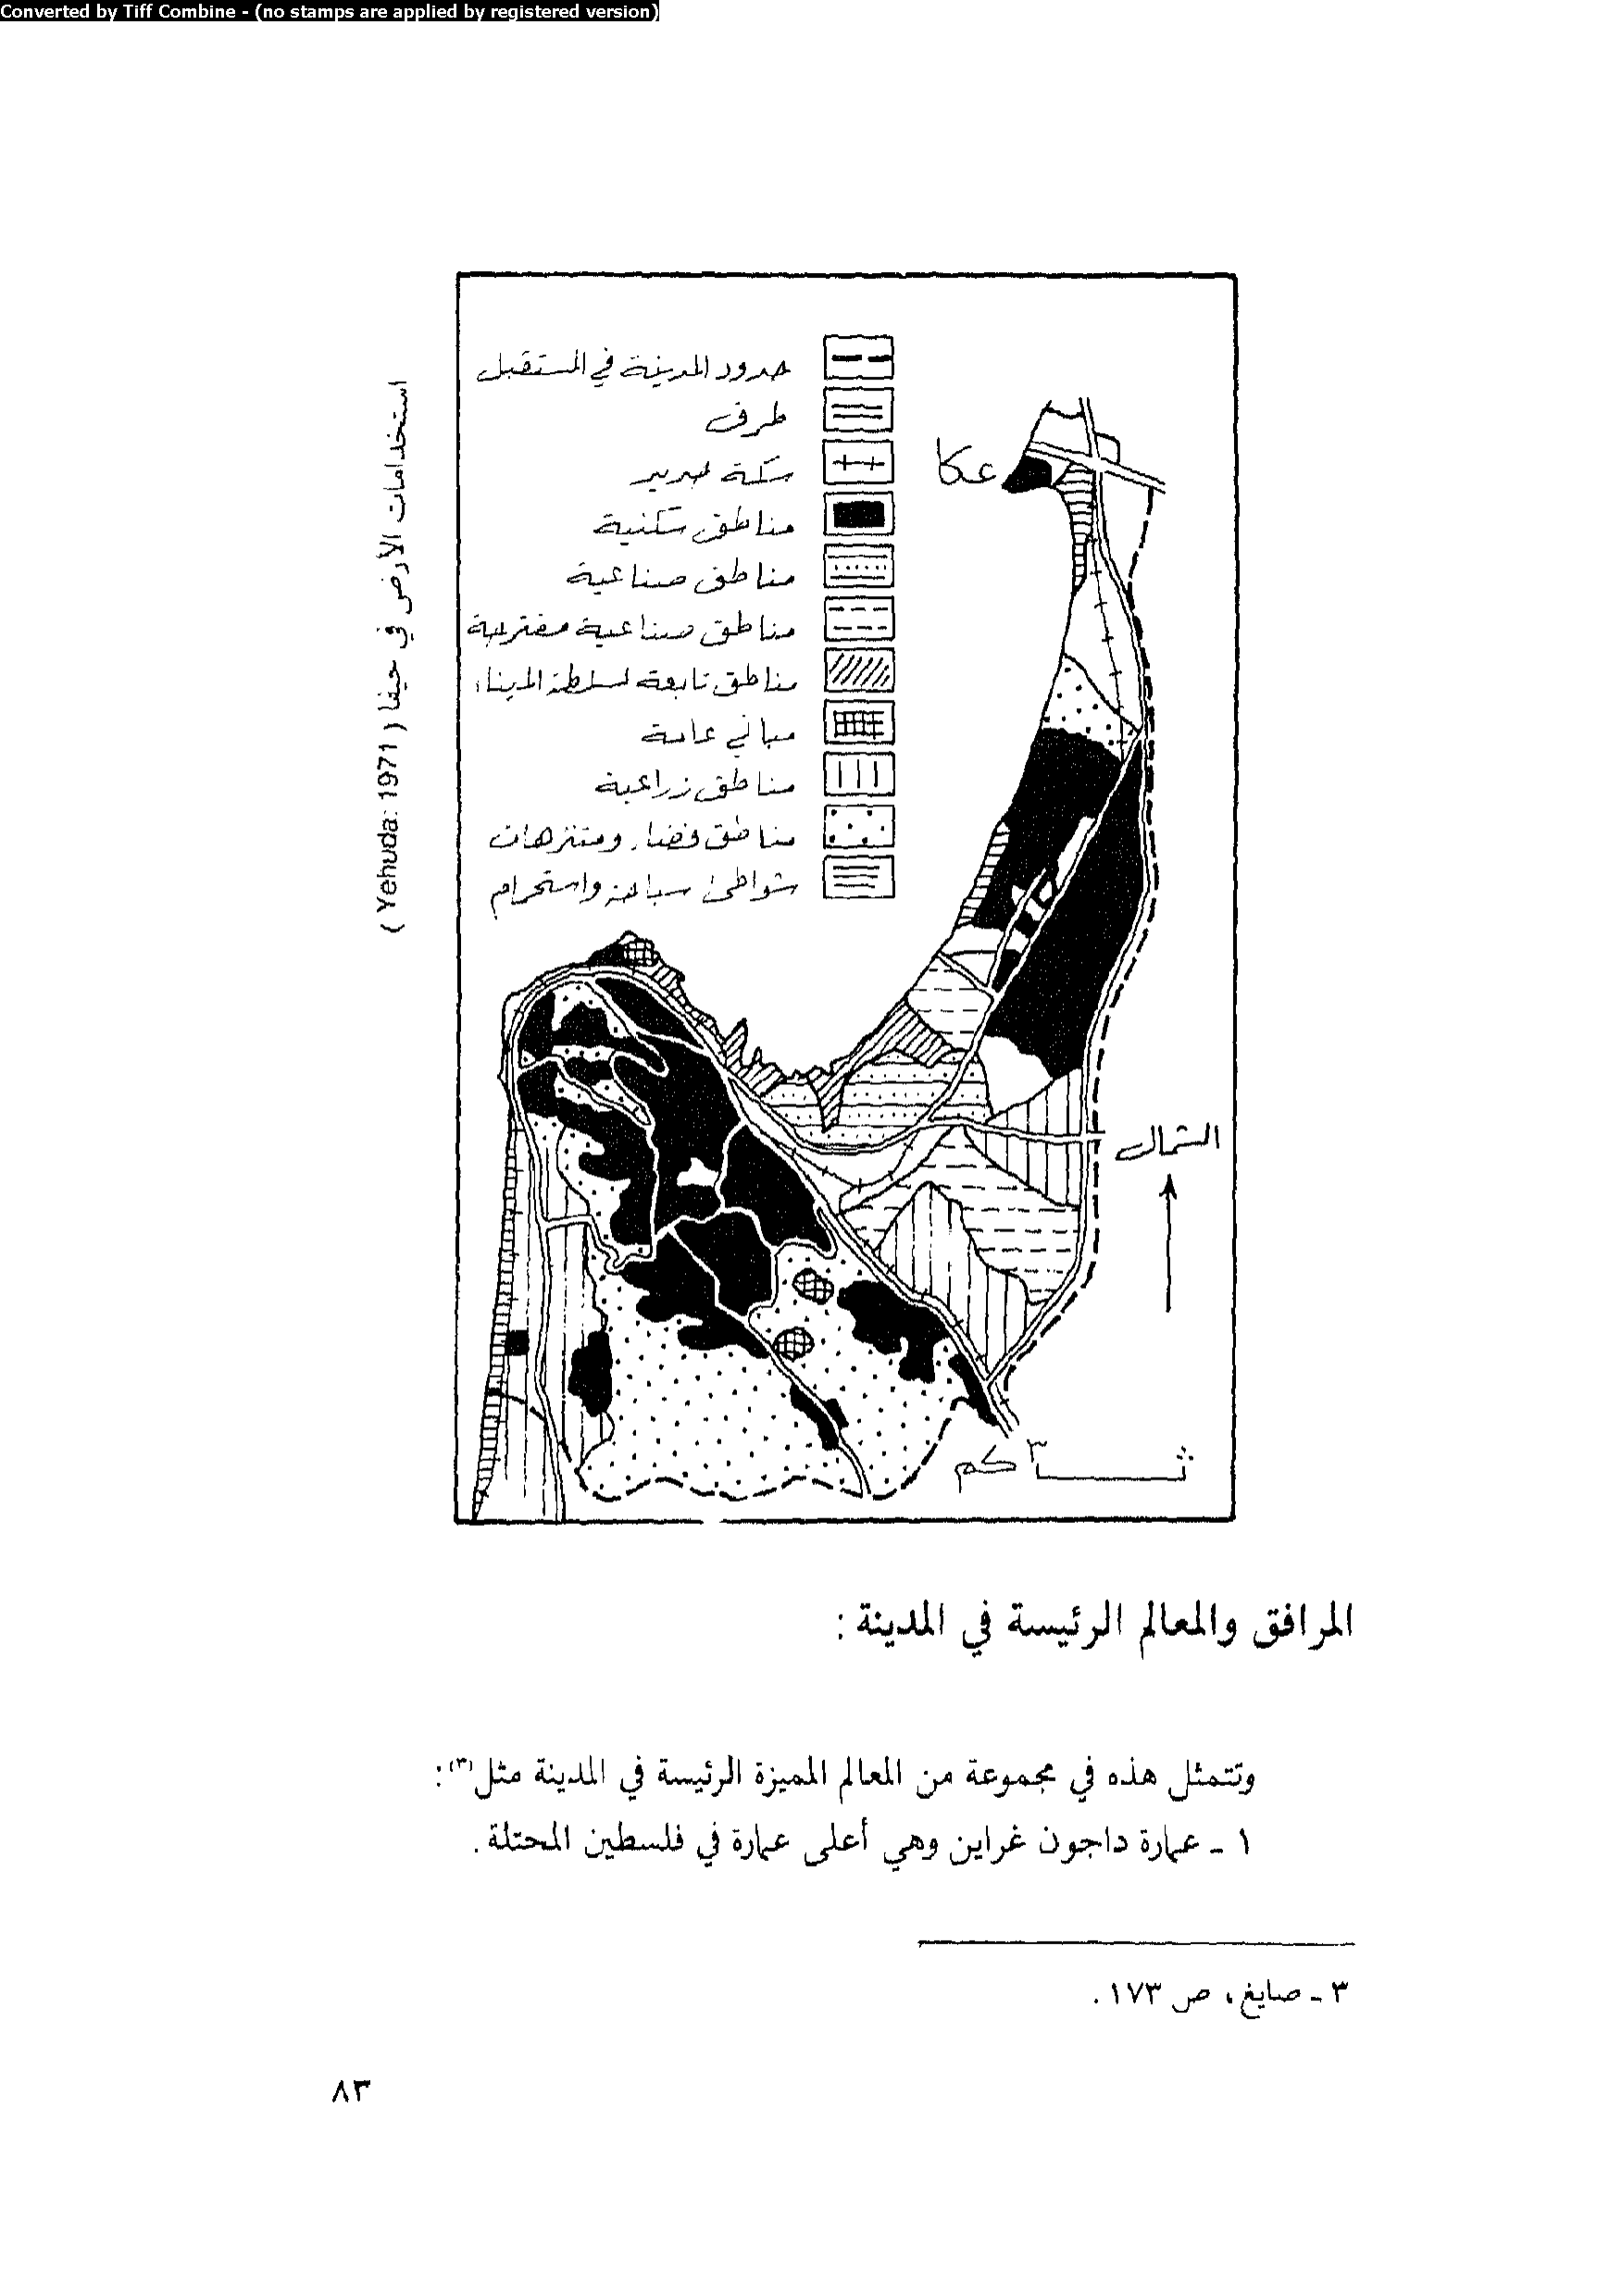 Converted by Tiff Combine - (no stamps are applied by registered version)
استخدامات الأرض في حيفا (Yehuda: 1971)
حدود المدينة في المستقبل
طرق
سكة حديد
مناطق سكنية
مناطق صناعية
مناطق صناعية مقترحة
مناطق تابعة لسلطة الميناء
مباني عامة
مناطق زراعية
مناطق فضاء ومتنزهات
شواطئ سباحة واستجمام
عكا
الشمال
٣ كم
المرافق والمعالم الرئيسة في المدينة :
وتتمثل هذه في مجموعة من المعالم المميزة الرئيسة في المدينة مثل(٣):
١ ـ عمارة داجون غراين وهي أعلى عمارة في فلسطين المحتلة .
٣ ـ صايغ، ص ١٧٣ .
٨٣